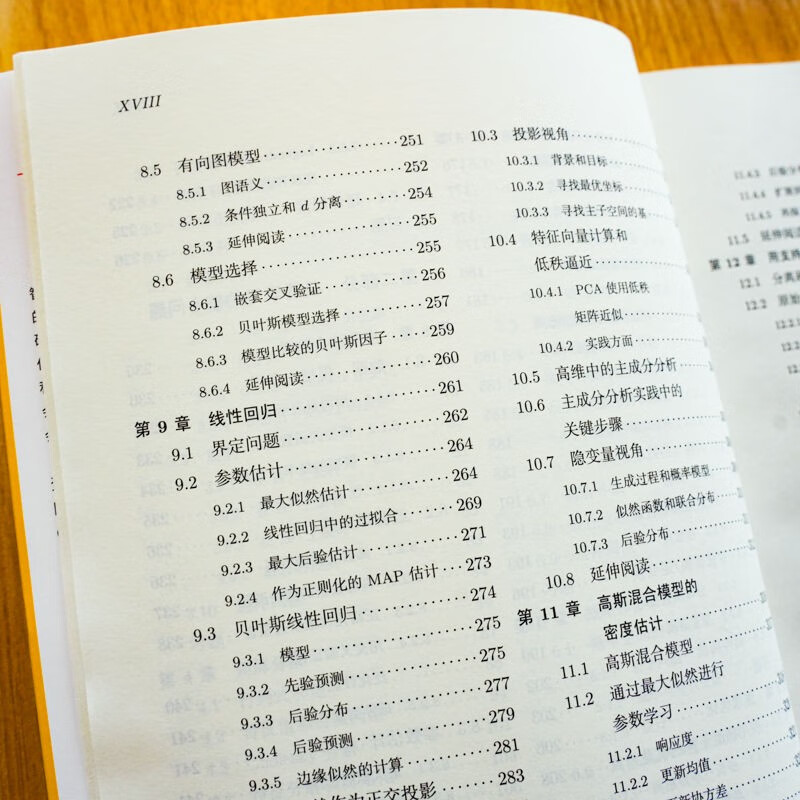 XVIII
8.5 有向图模型 251
8.5.1 图语义 252
8.5.2 条件独立和 d 分离 254
8.5.3 延伸阅读 255
8.6 模型选择 255
8.6.1 嵌套交叉验证 256
8.6.2 贝叶斯模型选择 257
8.6.3 模型比较的贝叶斯因子 259
8.6.4 延伸阅读 260
第 9 章 线性回归 261
9.1 界定问题 262
9.2 参数估计 264
9.2.1 最大似然估计 264
9.2.2 线性回归中的过拟合 269
9.2.3 最大后验估计 271
9.2.4 作为正则化的 MAP 估计 273
9.3 贝叶斯线性回归 274
9.3.1 模型 275
9.3.2 先验预测 275
9.3.3 后验分布 277
9.3.4 后验预测 279
9.3.5 边缘似然的计算 281
作为正交投影 283
10.3 投影视角
10.3.1 背景和目标
10.3.2 寻找最优坐标
10.3.3 寻找主子空间的基
10.4 特征向量计算和
低秩逼近
10.4.1 PCA 使用低秩
矩阵近似
10.4.2 实践方面
10.5 高维中的主成分分析
10.6 主成分分析实践中的
关键步骤
10.7 隐变量视角
10.7.1 生成过程和概率模型
10.7.2 似然函数和联合分布
10.7.3 后验分布
10.8 延伸阅读
第 11 章 高斯混合模型的
密度估计
11.1 高斯混合模型
11.2 通过最大似然进行
参数学习
11.2.1 响应度
11.2.2 更新均值
更新协方差
11.4.3 后验分
11.4.4 扩展
11.4.5 再
11.5 延伸阅读
第 12 章 用支持
12.1 分离
12.2 原始
12.2.1
12.2
12.2
12.